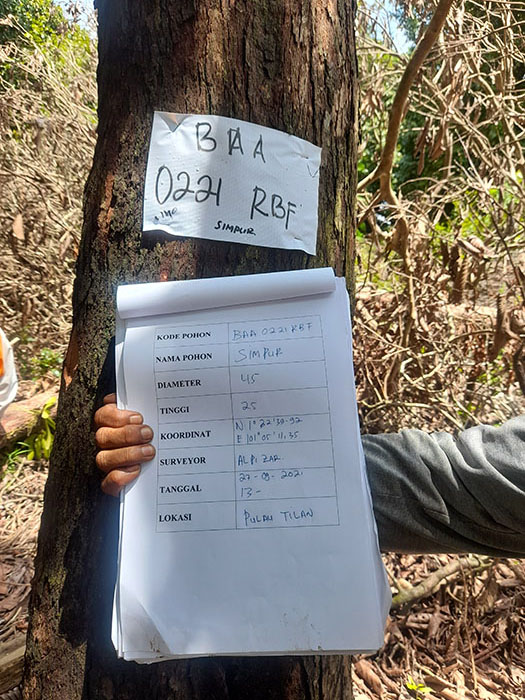 BAA
0221 RBF
SIMPUR
KODE POHON BAA 0221 RBF
NAMA POHON SIMPUR
DIAMETER 45
TINGGI 25
KOORDINAT N 1° 22' 30.92
E 101° 05' 11.35
SURVEYOR ALPIZAR
TANGGAL 27-09-2021
13-
LOKASI PULAU TILAN